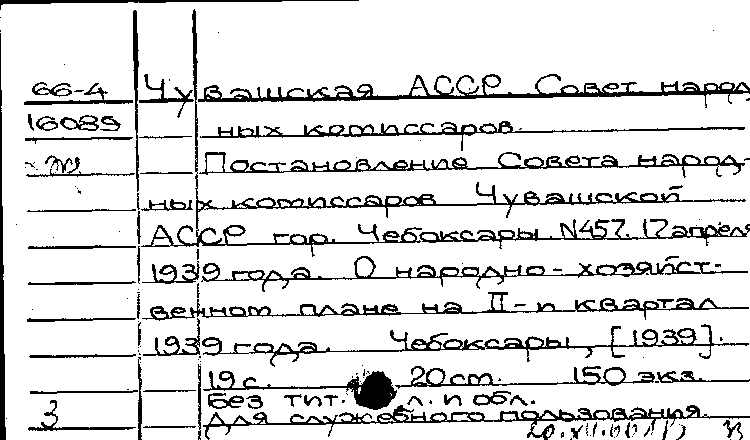 66-4 Чувашская АССР. Совет народ
16089 ных комиссаров.
Постановление Совета народ-
ных комиссаров Чувашской
АССР гор. Чебоксары N457. 17 апреля
1939 года. О народно-хозяйст-
венном плане на II-й квартал
1939 года. Чебоксары, [1939].
19 с. 20 cm. 150 экз.
Без тит. л. и обл.
3 Для служебного пользования.